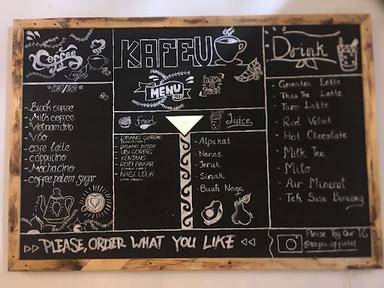 Coffee
Black coffee
Milk coffee
Vietnam drip
V60
cafe latte
cappucino
Mochacino
coffee palem sugar
KAFEU
MENU
food
PISANG GORENG
UBI GORENG
KENTANG
ROTI BAKAR
NASI UDUK
Juice
Alpukat
Nanas
Jeruk
Sirsak
Buah Naga
Drink
Greentea Latte
Thai Tea Latte
Taro Latte
Red Velvet
Hot Chocolate
Milk Tea
Milo
Air Mineral
Teh Susu Bandung
PLEASE, ORDER WHAT YOU LIKE
Please Tag Our IG